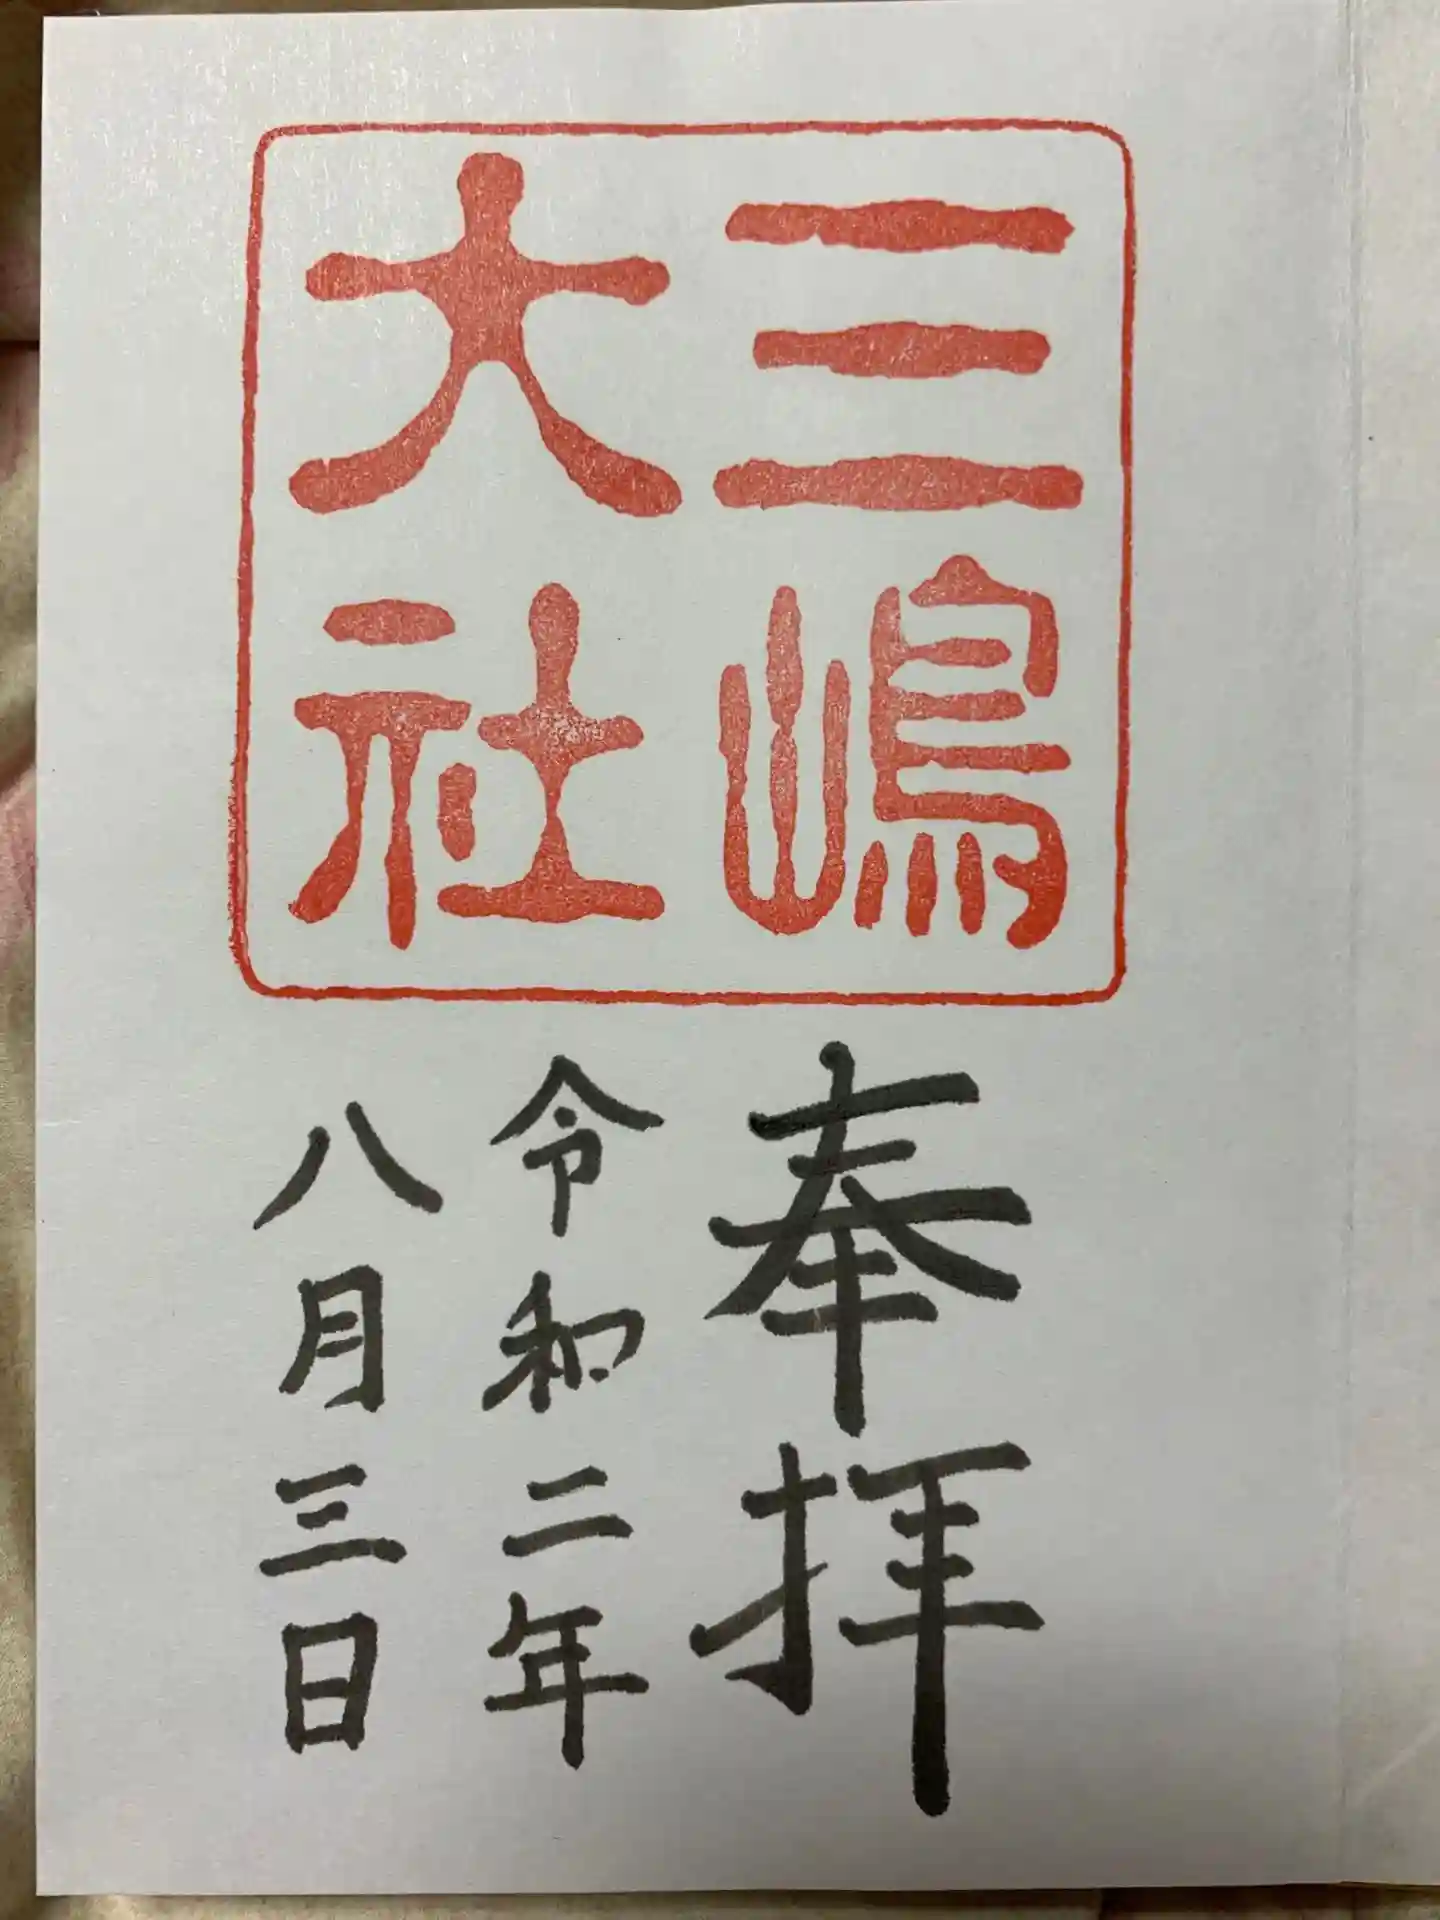 三嶋
大社
奉拝
令和二年
八月三日